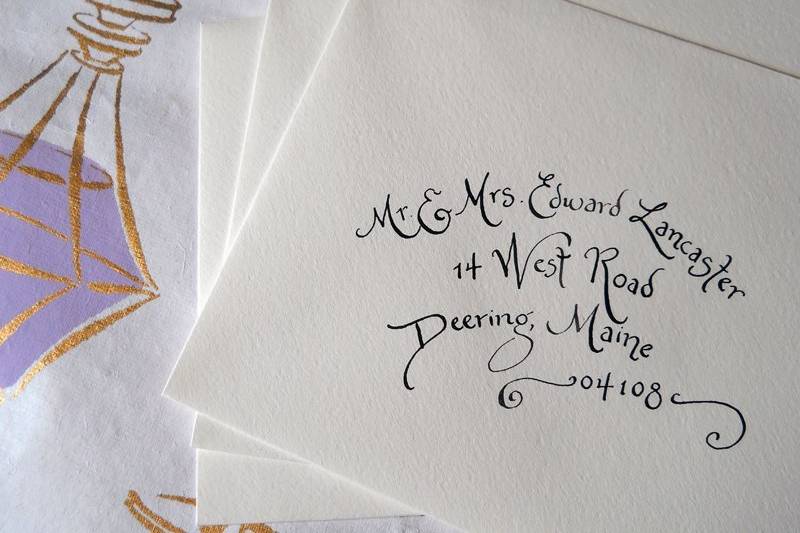 Mr. & Mrs. Edward Lancaster
14 West Road
Deering, Maine
04108